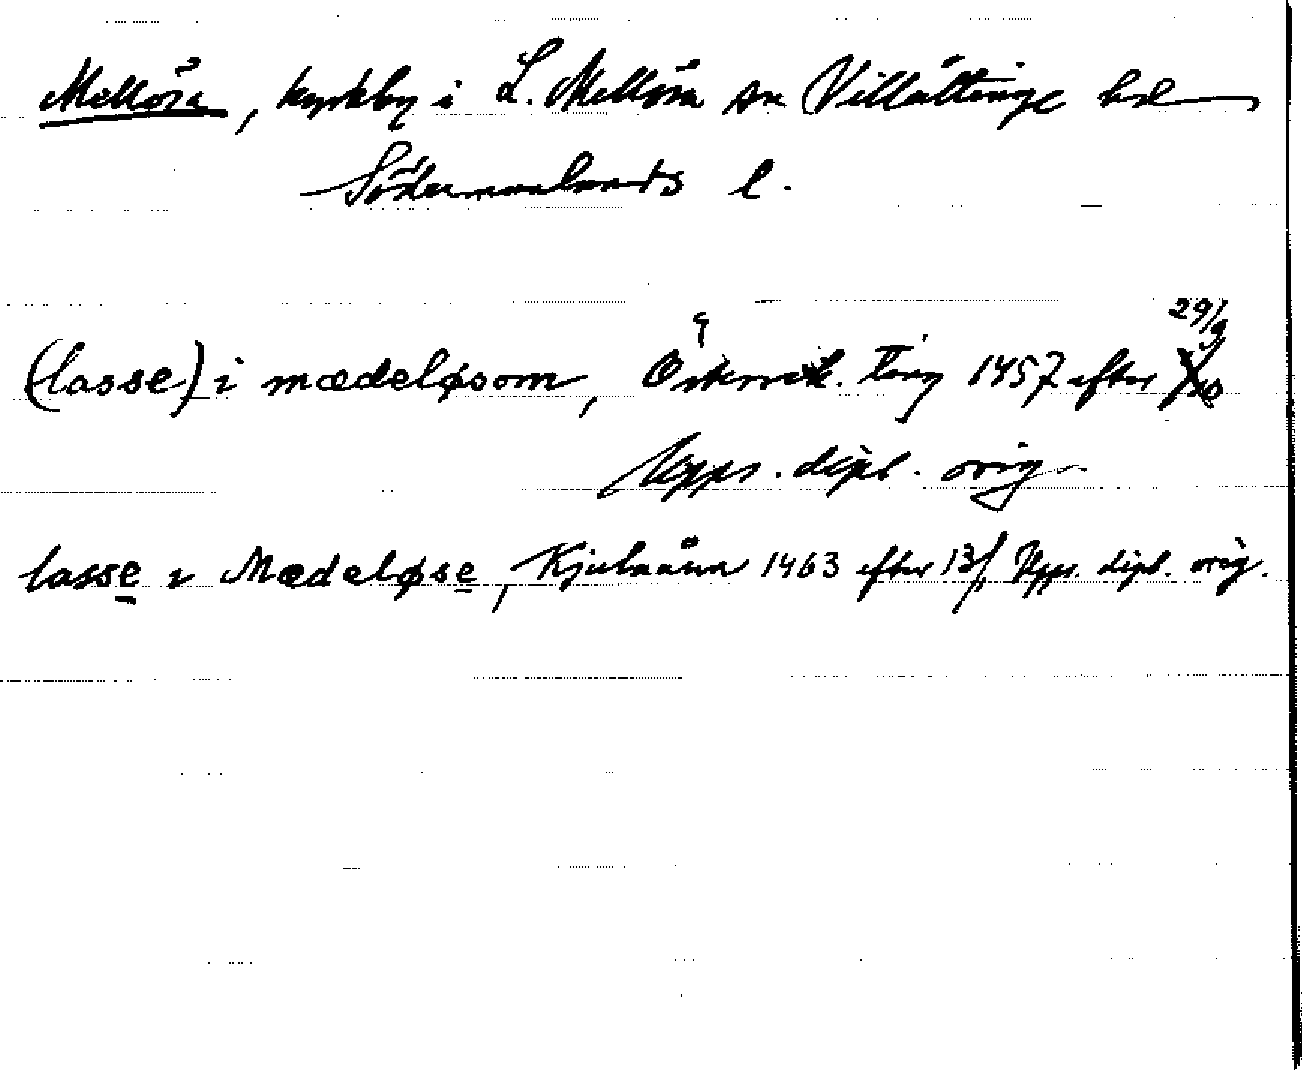 Mellösa, kyrkby i L. Mellösa sn Villåttinge hd
Södermanlands l.
29/9
(lasse) i mædeløsom, ting 1457 efter
Upps. dipl. orig
lasse i Mædeløse, Kjulaåsn 1463 efter 13/ Upps. dipl. orig.